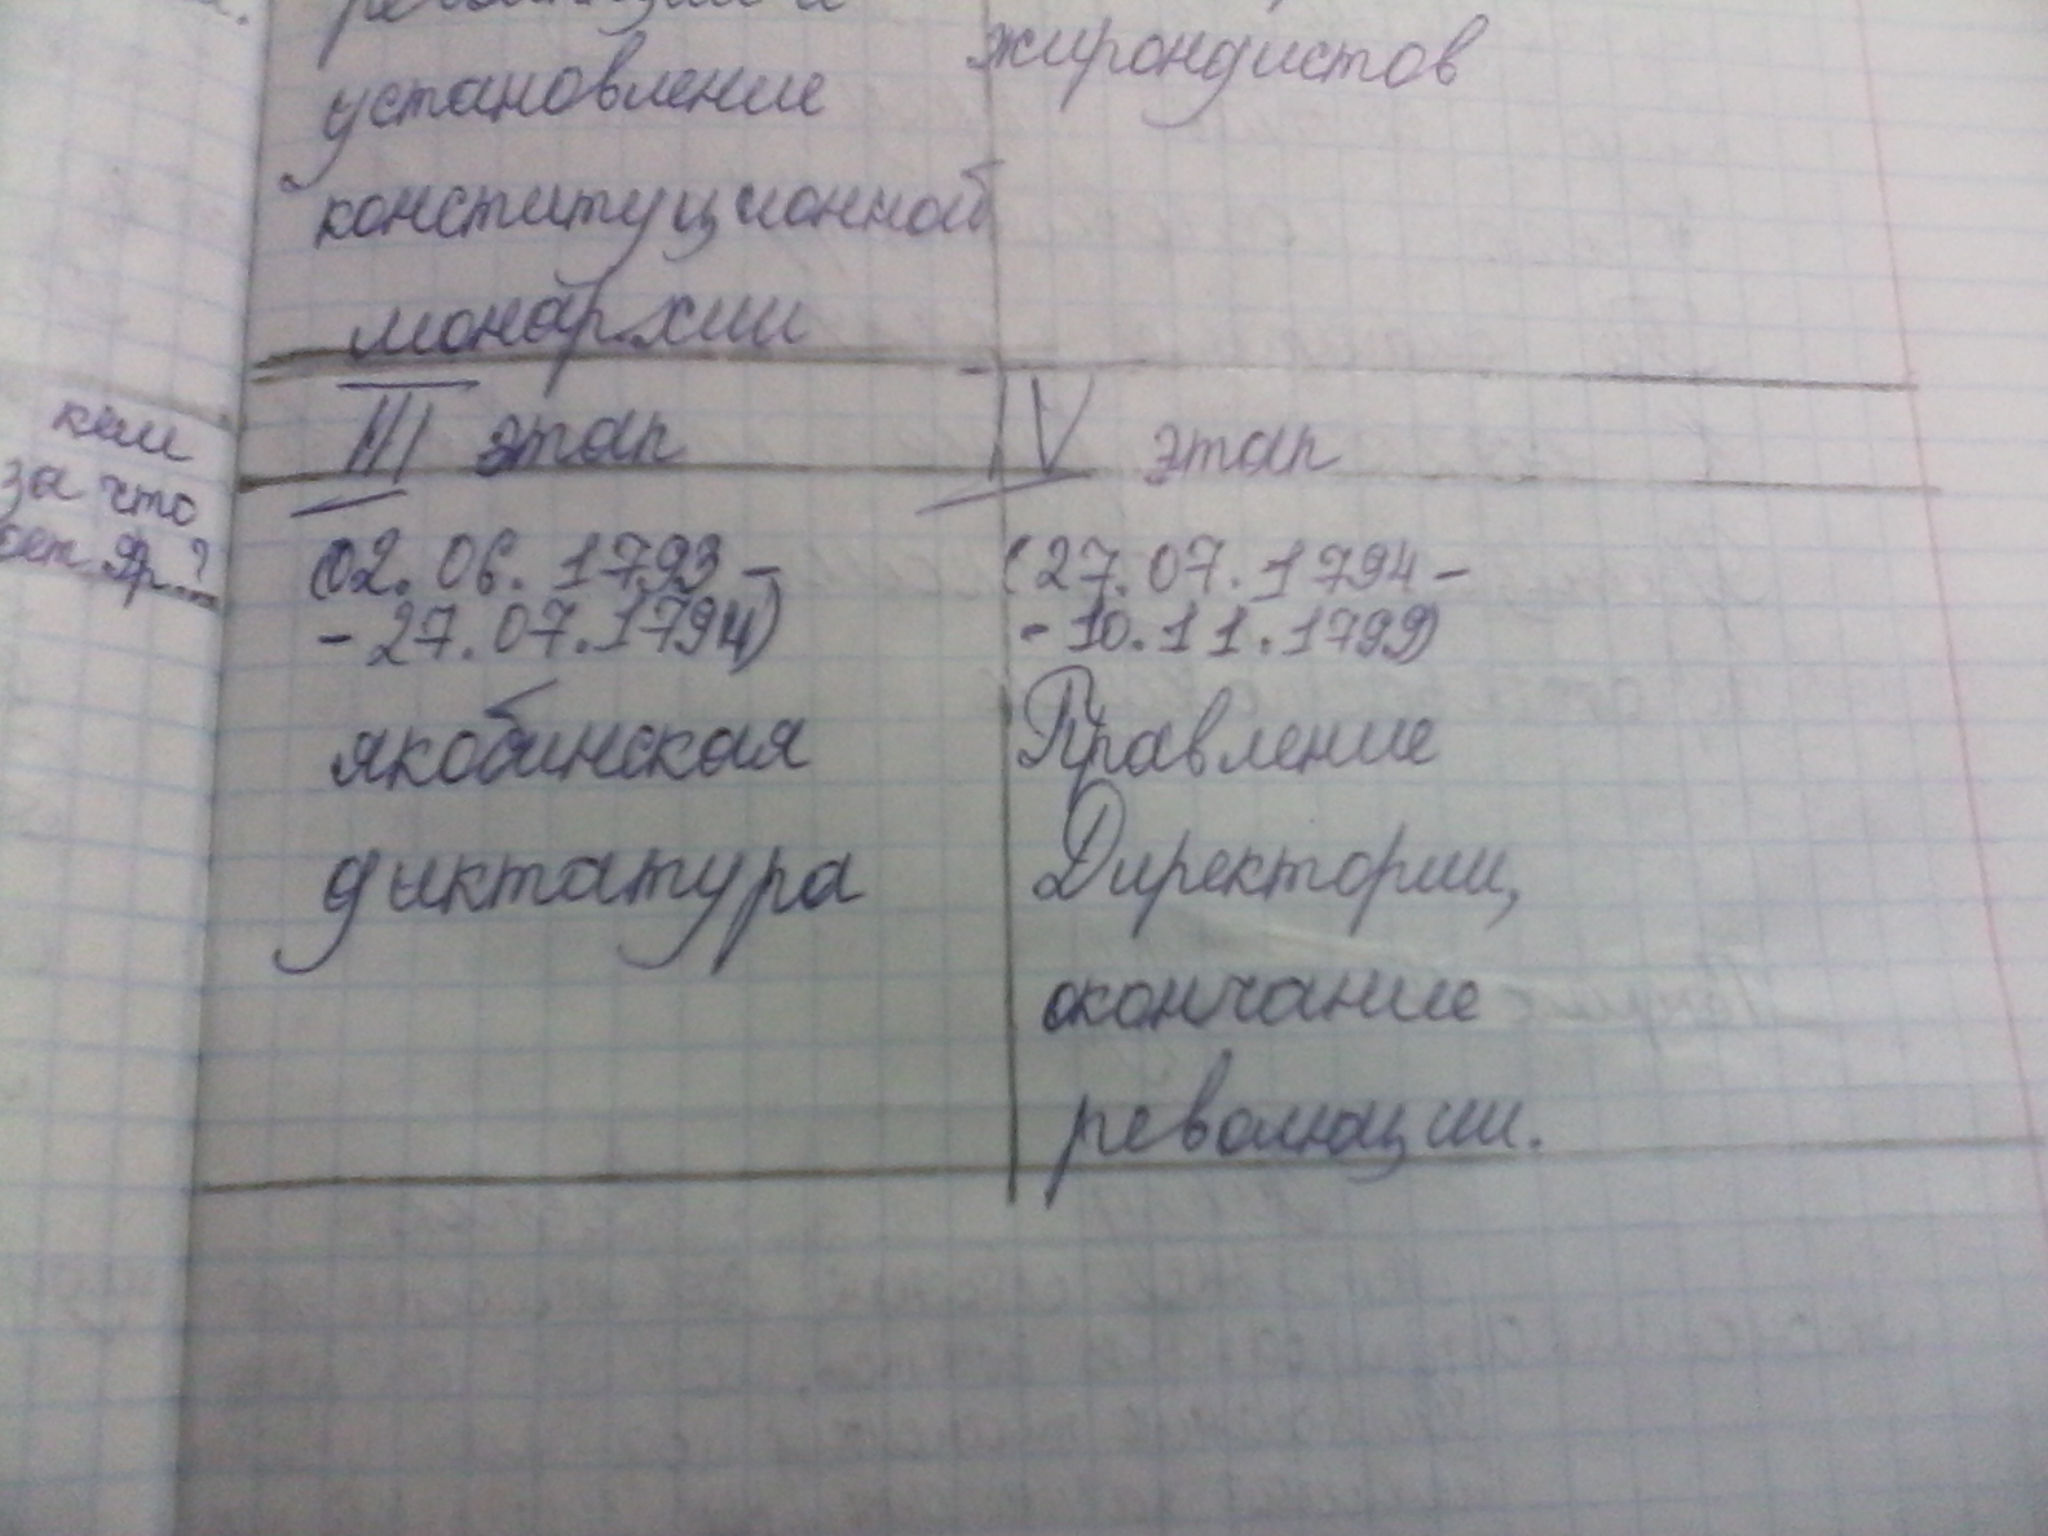 установление
конституционной
монархии
жирондистов
III этап
(02.06.1793 –
– 27.07.1794)
якобинская
диктатура
IV этап
(27.07.1794 –
- 10.11.1799)
Правление
Директории,
окончание
революции.
кем
за что
Фр...?